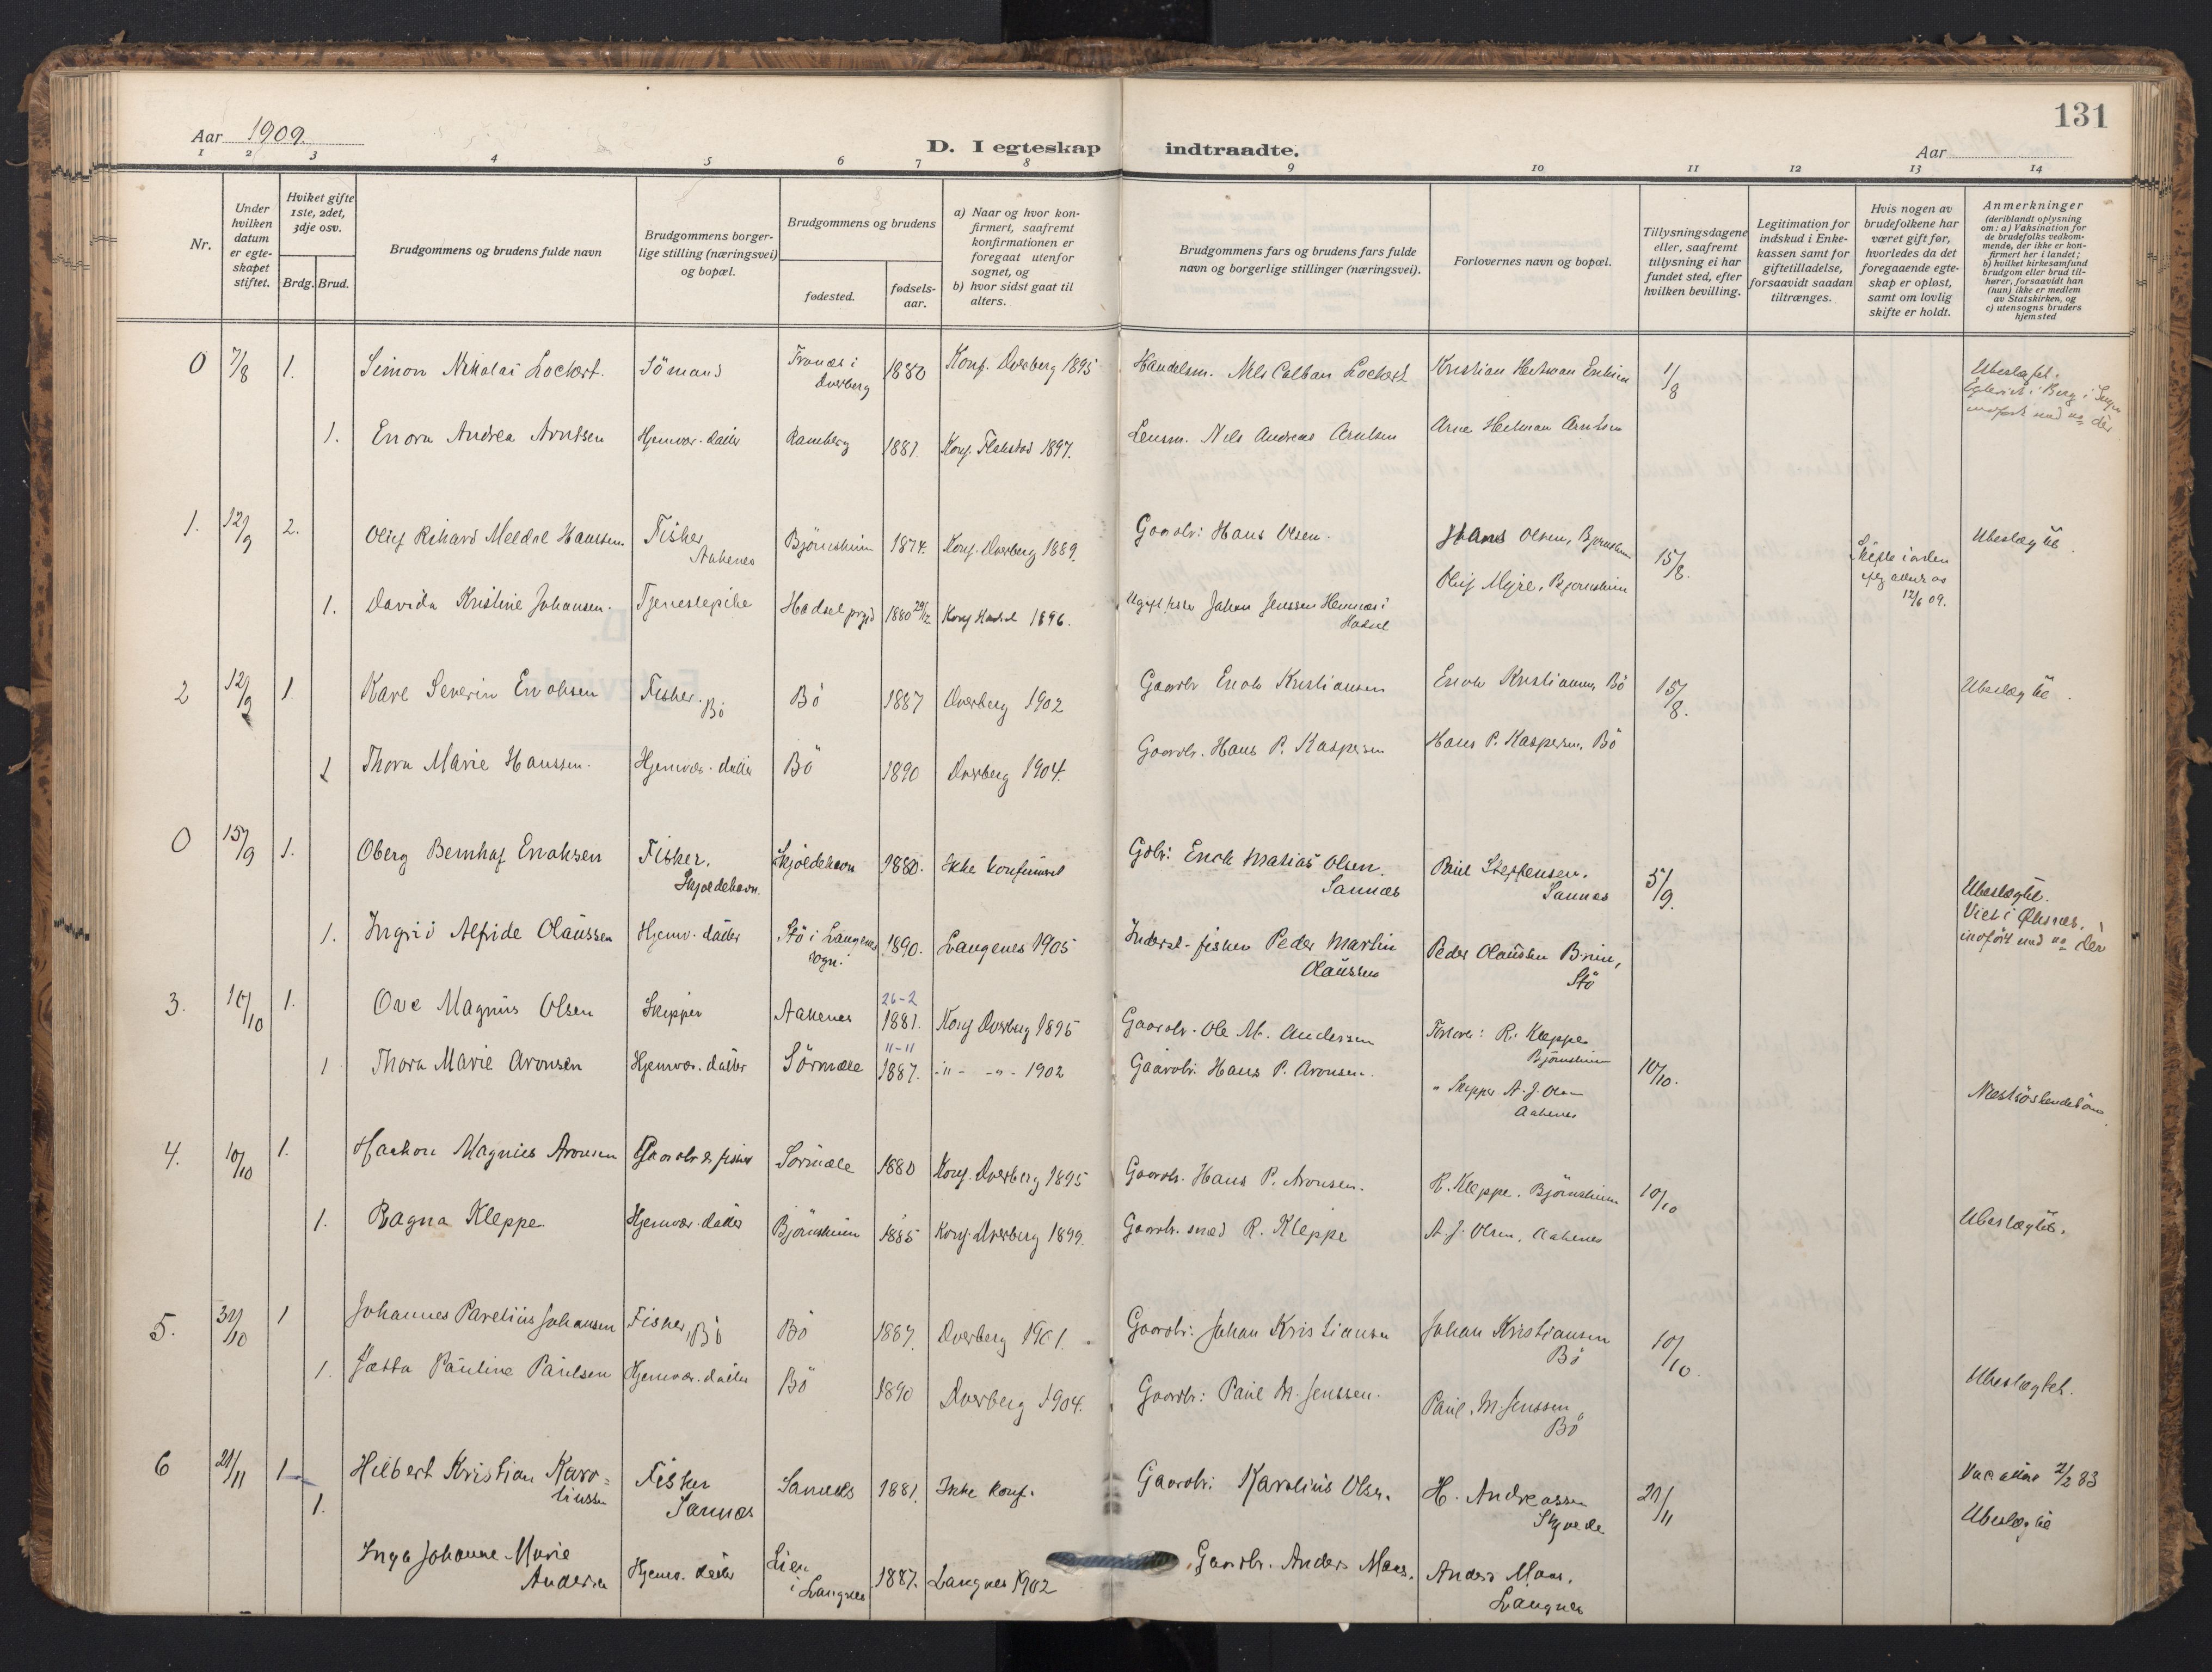 131
Aar 1909.
D. I egteskap indtraadte.
Aar
1 2 3 4 5 6 7 8 9 10 11 12 13 14
Nr.
Under hvilken datum er egte-skapet stiftet.
Hviket gifte 1ste, 2det, 3dje osv.
Brdg. Brud.
Brudgommens og brudens fulde navn
Brudgommens borger-lige stilling (næringsvei) og bopæl.
Brudgommens og brudens
fødested.
fødsels-aar.
a) Naar og hvor kon-firmert, saafremt konfirmationen er foregaat utenfor sognet, og
b) hvor sidst gaat til alters.
Brudgommens fars og brudens fars fulde navn og borgerlige stillinger (næringsvei).
Forlovernes navn og bopæl.
Tillysningsdagene eller, saafremt tillysning ei har fundet sted, efter hvilken bevilling.
Legitimation for indskud i Enke-kassen samt for giftetilladelse, forsaavidt saadan tiltrænges.
Hvis nogen av brudefolkene har været gift før, hvorledes da det foregaaende egte-skap er opløst, samt om lovlig skifte er holdt.
Anmerkninger (deriblandt oplysning om: a) Vaksination for de brudefolks vedkom-mende, der ikke er kon-firmert her i landet; b) hvilket kirkesamfund brudgom eller brud til-hører, forsaavidt han (hun) ikke er medlem av Statskirken, og c) utensogns bruders hjemsted
0 7/8 1. Simon Nikolai Lockert. Sömand Tranæs i Dverberg 1880 Konf. Dverberg 1895 Handelsm. Nils Colban Lockert Kristian Herman 1/8 Ubeslægt.
1. Enora Andrea Arntsen Hjemvær. datter Ramberg 1881. Konf. Flakstad 1897. Lensm. Nils Andreas Arntsen Arne Herman Arntsen
1. 12/9 2. Oluf Rikard Meldal Hanssen. Fisker Aakenes Björnskinn 1874. Konf. Dverberg 1889. Gaardbr. Hans Olsen. Hans Olsen, Björnskinn 15/8. Skifte 12/6 09. Ubeslægtet.
1. Davida Kristine Johansen. Tjenestepike Hadsel prgd 1880 29/12 Konf Hadsel 1896. Ugift fisker Johan Jenssen i Hadsel Oluf Myre, Bjørnskinn
2 12/9 1. Karl Severin Enoksen Fisker. Bö Bö 1887 Dverberg 1902 Gaardbr Enok Kristiansen Enok Kristiansen, Bö 15/8. Ubeslægtet.
1 Thora Marie Hanssen. Hjemvær. datter Bö 1890 Dverberg 1904. Gaardbr. Hans P. Kaspersen Hans P. Kaspersen, Bö
0 15/9 1. Oberg Bernhof Enoksen Fisker. Skjoldehavn. Skjoldehavn 1880. Ikke konfirmeret Gdbr: Enok Matias Olsen. Sannæs Paul Steffensen. Sannes 5/9. Ubeslægtet. Viet i Øksnæs, indfört med no der
1. Ingrid Alfride Olaussen Hjemv. datter Stö i Langenes sogn. 1890. Langenes 1905 Inderst. fisker Peder Martin Olaussen Peder Olaussen Brun, Stö
3. 10/10 1. Ove Magnus Olsen Skipper Aakenes 26-2 1881. Konf Dverberg 1895 Gaardbr. Ole M. Andersen Forlover: R. Kleppe Björnskinn 10/10.
1 Thora Marie Aronsen Hjemvær. datter Sörmæle 11-11 1887. -"- -"- 1902 Gaardbr. Hans P. Aronsen. " Skipper A. J. Olsen Aakenes Næstsöskendebörn
4. 10/10 1. Haakon Magnus Aronsen Gaardbr & fisker Sörmæle 1880 Konf. Dverberg 1895 Gaardbr. Hans P. Aronsen. R. Kleppe. Björnskinn 10/10
1. Ragna Kleppe Hjemvær. datter Björnskinn 1885 Konf. Dverberg 1899. Gaardbr. smed R. Kleppe A. J. Olsen, Aakenes Ubeslægtet.
5. 31/10 1 Johannes Parelius Johansen Fisker, Bö Bö 1887. Dverberg 1901. Gaardbr: Johan Kristiansen Johan Kristiansen Bö 10/10.
1. Jætta Pauline Paulsen Hjemvær. datter Bö 1890 Dverberg 1904. Gaardbr: Paul M. Jenssen. Paul M. Jenssen, Bö Ubeslægtet.
6 21/11 1 Hilbert Kristian Karoliussen Fisker Sannæs Sannes 1881. Ikke konf. Gaardbr. Karolius Olsen. H. Andreassen 21/11 Vaccine 2/2 83
1. Inga Johanne Marie Andersen Hjemv. datter Lien i Langnes 1887. Langnes 1902 Gaardbr. Anders Maas. Anders Maas, Langnes Ubeslægtet